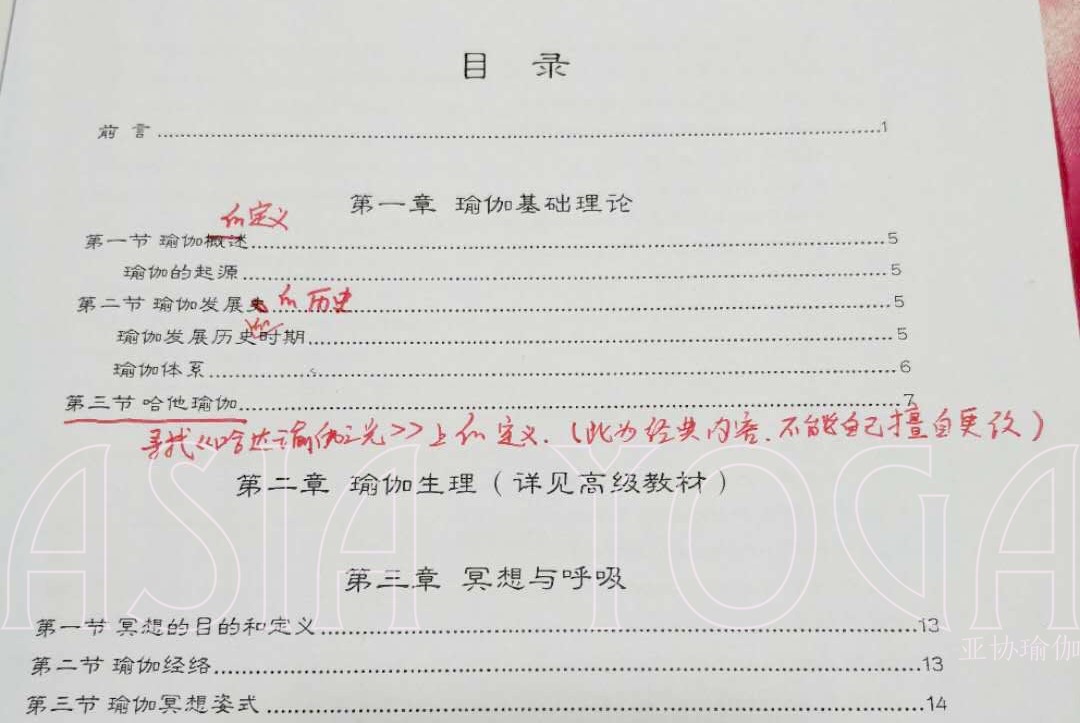 目 录
前 言 ........ 1
第一章 瑜伽基础理论
的定义
第一节 瑜伽概述 ........ 5
瑜伽的起源 ........ 5
第二节 瑜伽发展史 ........ 5
的历史
瑜伽发展历史时期 ........ 5
瑜伽体系 ........ 6
第三节 哈他瑜伽 ........ 7
寻找《哈达瑜伽之光》上的定义.(此为经典内容.不能自己擅自更改)
第二章 瑜伽生理(详见高级教材)
第三章 冥想与呼吸
第一节 冥想的目的和定义 ........ 13
第二节 瑜伽经络 ........ 13
第三节 瑜伽冥想姿式 ........ 14
ASIA YOGA
亚协瑜伽